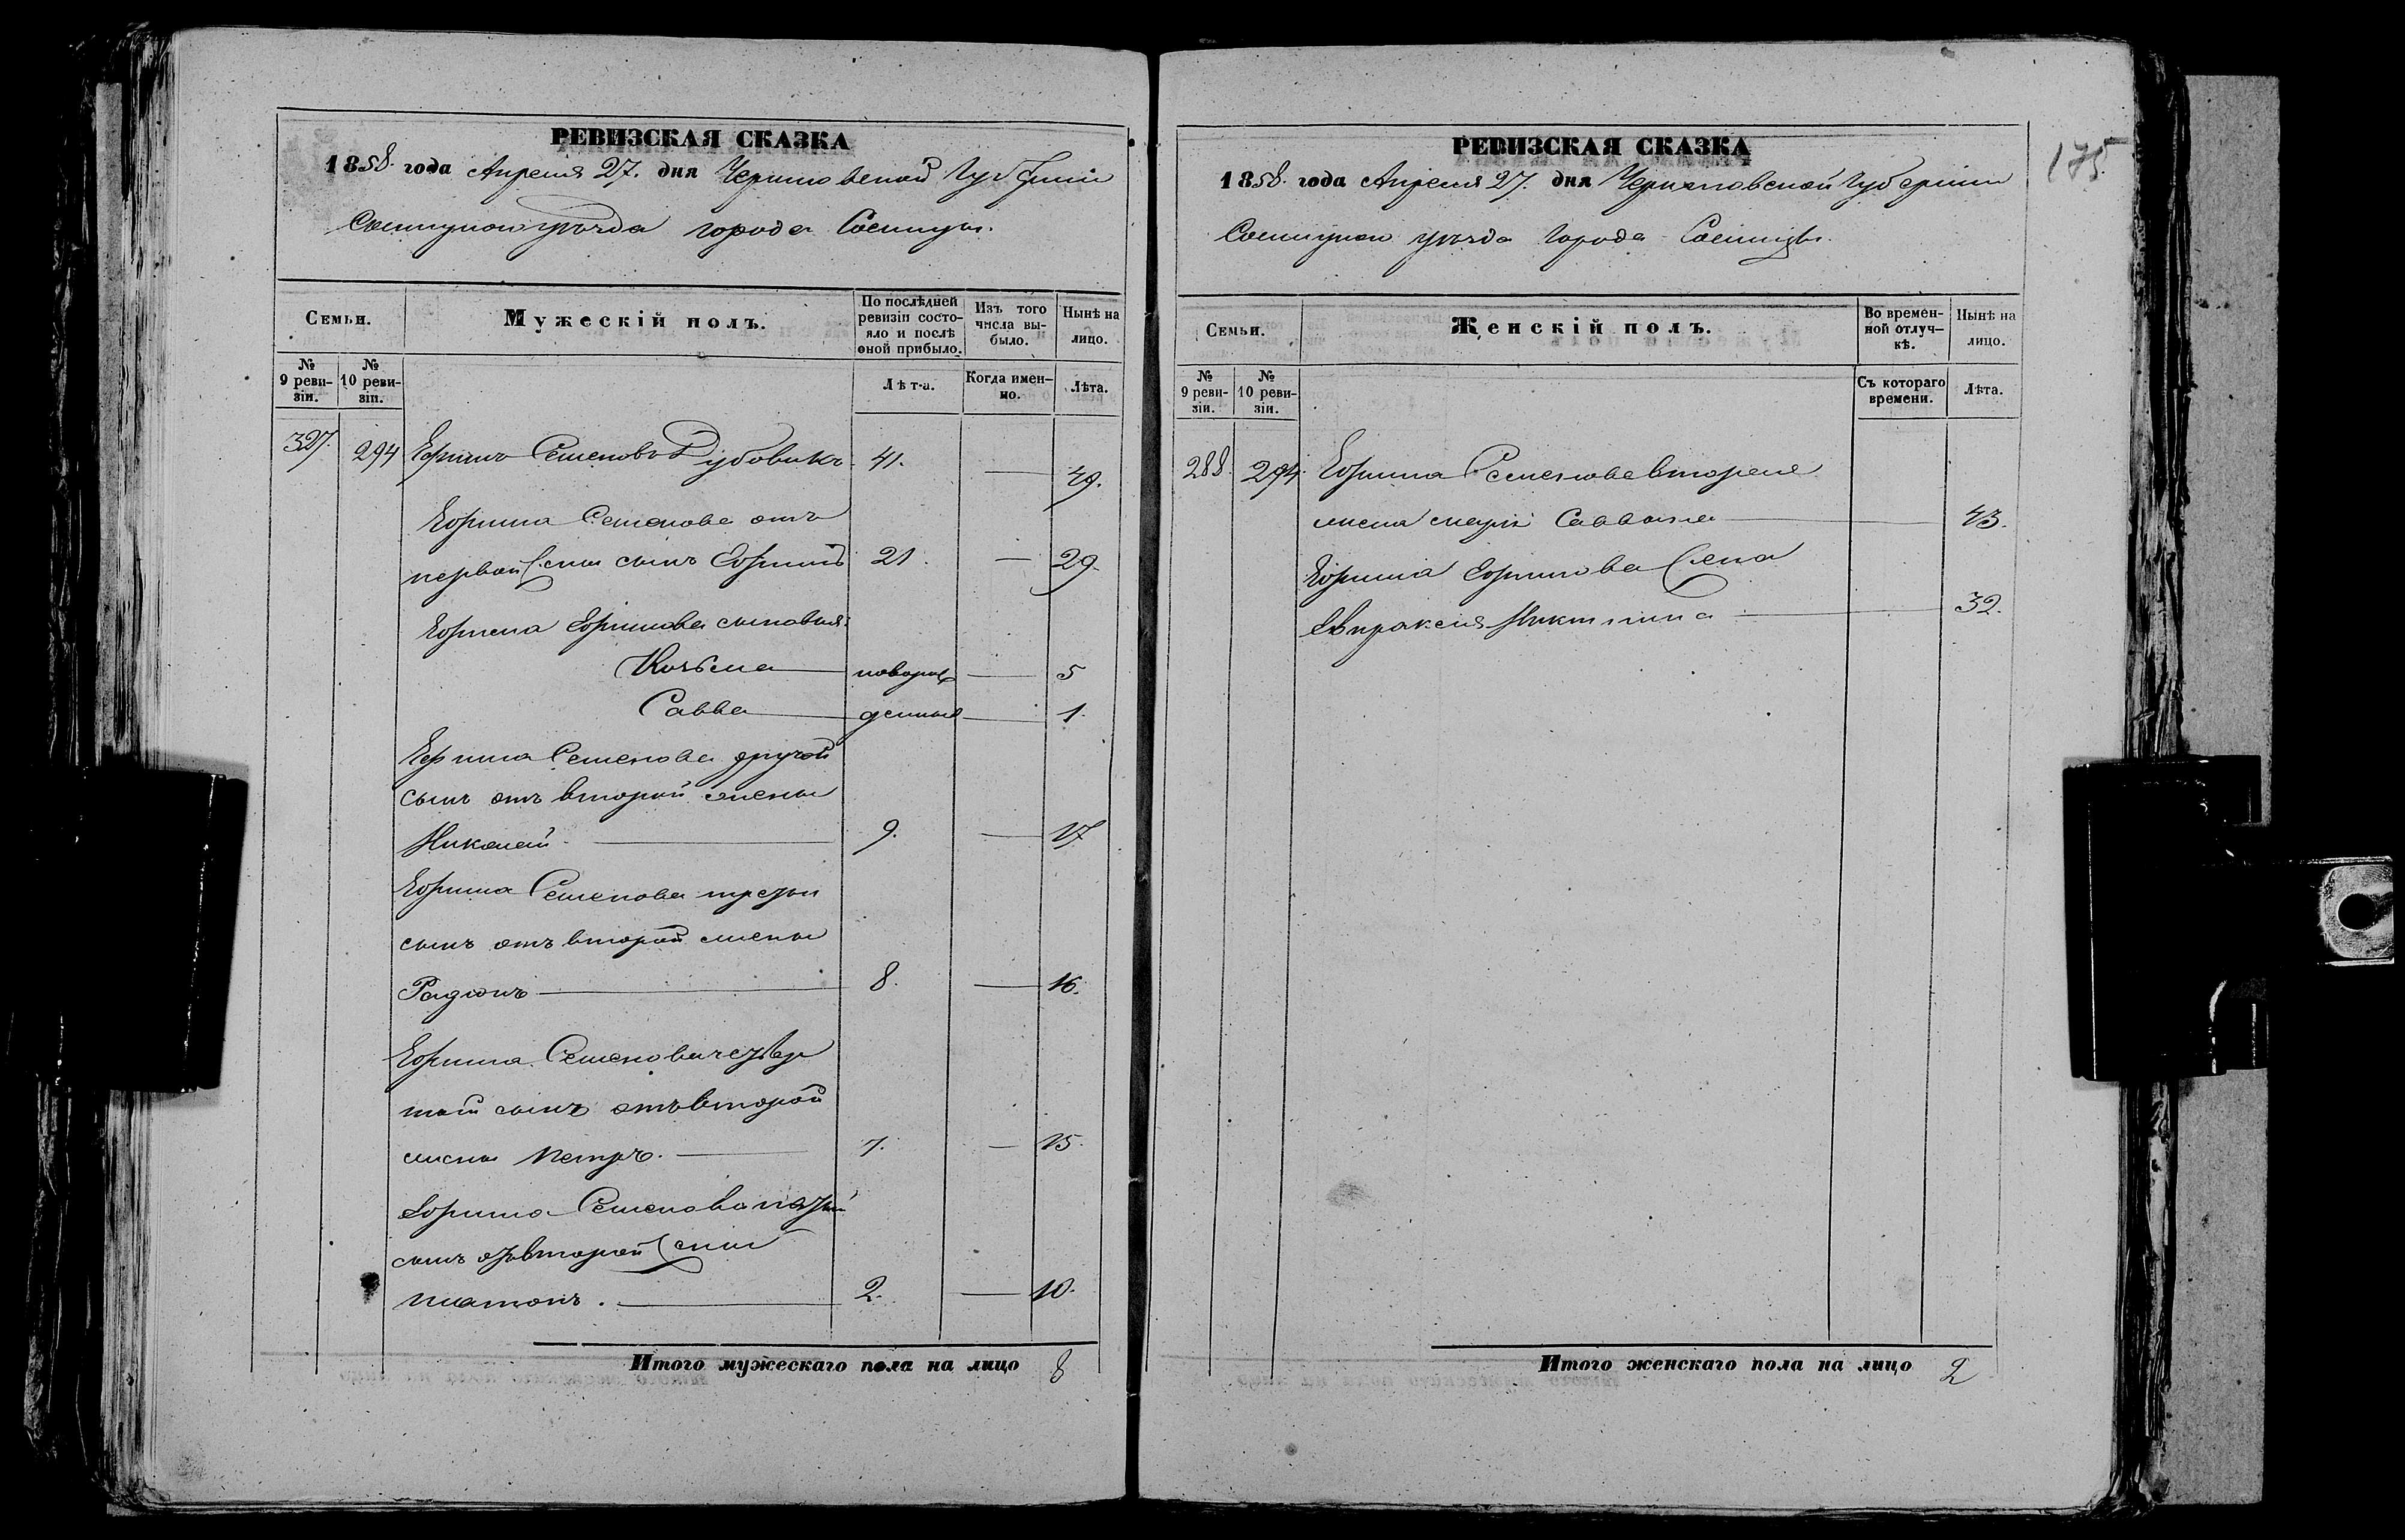 РЕВИЗСКАЯ СКАЗКА
1858 года Апреля 27. дня Черниговской Губернiи
Сосницкого уѣзда города Сосницы.
Семьи.
Мужескiй полъ.
По послѣдней ревизiи состояло и послѣ оной прибыло.
Изъ того числа выбыло.
Нынѣ на лицо.
№ 9 ревизiи.
№ 10 ревизiи.
Лѣта.
Когда именно.
Лѣта.
327. 294 Ефимъ Семеновъ Дубовикъ 41. — 49.
Ефима Семенова отъ
первой жены сынъ Ефимъ 21. — 29.
Ефима Ефимова сыновья:
Козьма — новорож — 5
Савва — денные — 1.
Ефима Семенова другой
сынъ отъ второй жены
Николай — 9. — 17
Ефима Семенова третiй
сынъ отъ второй жены
Радiонъ — 8. — 16.
Ефима Семенова четвер
тый сынъ отъ второй
жены Петръ. — 7. — 15.
Ефима Семенова пятый
сынъ отъ второй жены
Платонъ. — 2. — 10.
Итого мужескаго пола на лицо 8
175.
РЕВИЗСКАЯ СКАЗКА
1858. года Апреля 27. дня Черниговской Губернiи
Сосницкого уѣзда города Сосницы.
Семьи.
Женскiй полъ.
Во временной отлучкѣ.
Нынѣ на лицо.
№ 9 ревизiи.
№ 10 ревизiи.
Съ котораго времени.
Лѣта.
288. 294. Ефима Семенова вторая
жена Марiя Саввина — 43.
Ефима Ефимова жена
Евпраксия Никитина — 32.
Итого женскаго пола на лицо 2